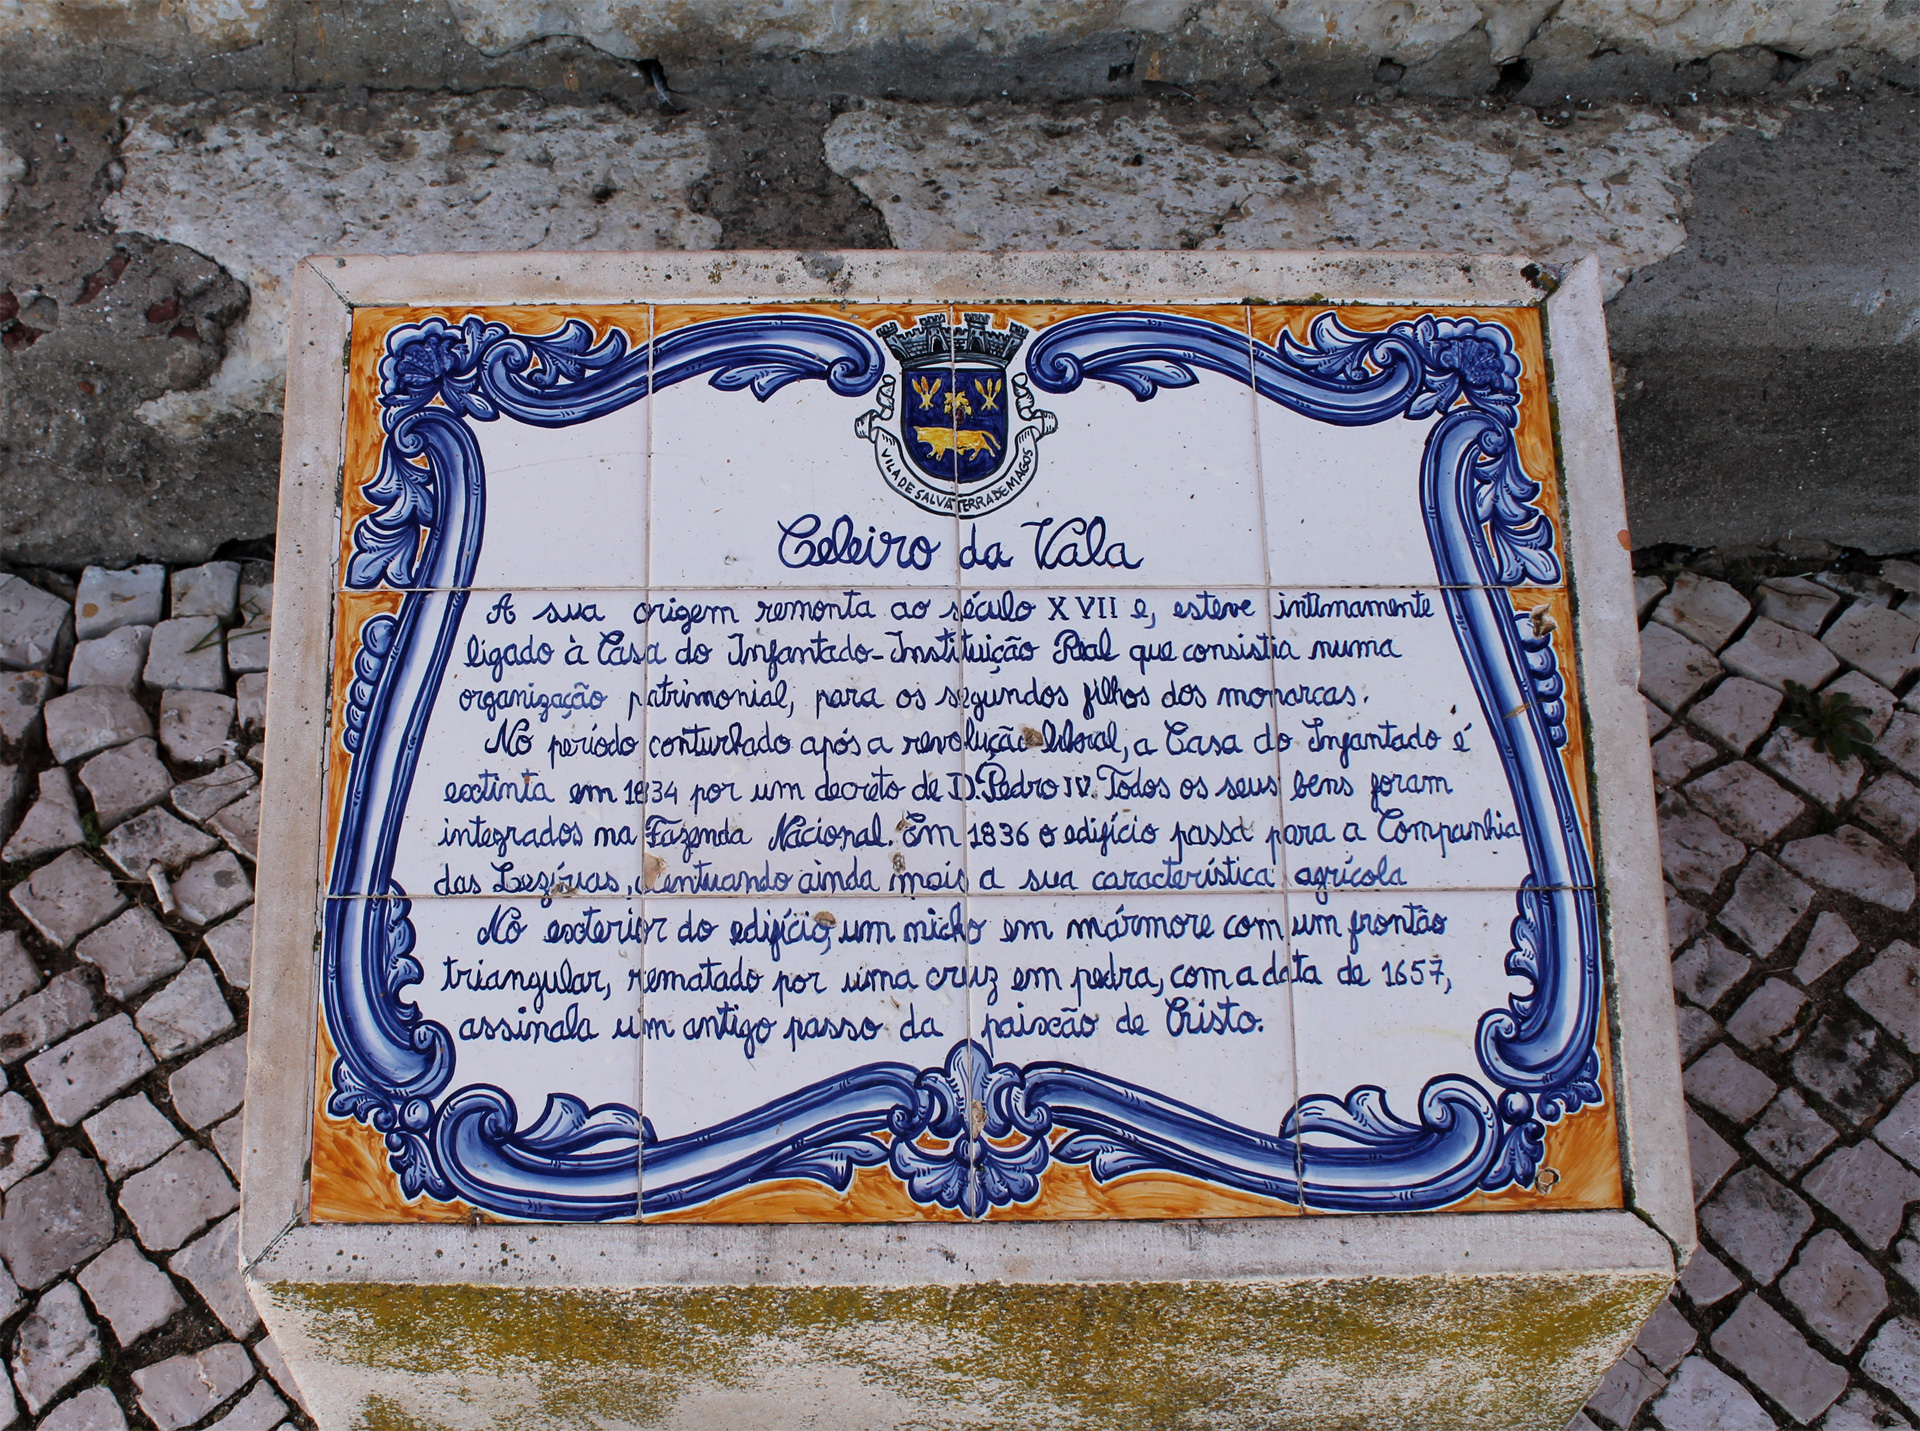 VILA DE SALVATERRA DE MAGOS
Celeiro da Vala
A sua origem remonta ao século XVII e, esteve intimamente
ligado à Casa do Infantado-Instituição Real que consistia numa
organização patrimonial, para os segundos filhos dos monarcas.
No período conturbado após a revolução liberal, a Casa do Infantado é
extinta em 1834 por um decreto de D. Pedro IV. Todos os seus bens foram
integrados na Fazenda Nacional. Em 1836 o edifício passa para a Companhia
das Lezírias, acentuando ainda mais a sua característica agrícola
No exterior do edifício, um nicho em mármore com um frontão
triangular, rematado por uma cruz em pedra, com a data de 1657,
assinala um antigo passo da paixão de Cristo.